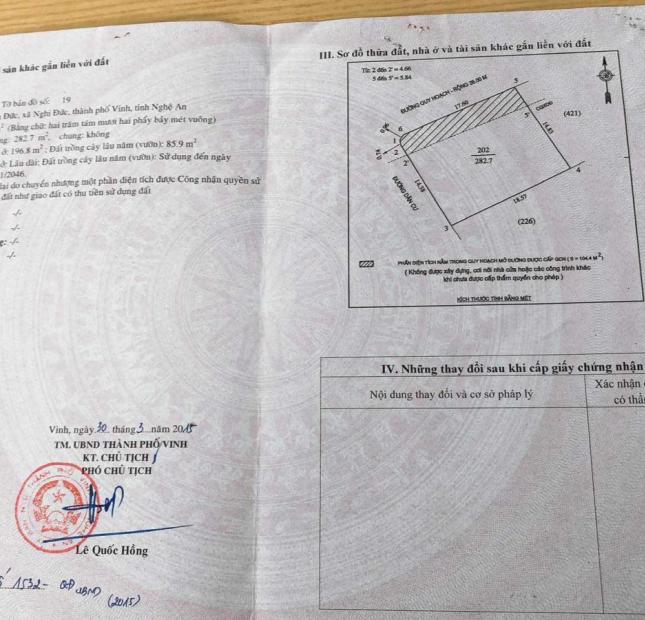 sản khác gắn liền với đất
Tờ bản đồ số: 19
Đức, xã Nghi Đức, thành phố Vinh, tỉnh Nghệ An
(Bằng chữ: hai trăm tám mươi hai phẩy bảy mét vuông)
282.7 m², chung: không
ở: 196.8 m² ; Đất trồng cây lâu năm (vườn): 85.9 m²
ở: Lâu dài; Đất trồng cây lâu năm (vườn): Sử dụng đến ngày
1/2046.
lại do chuyển nhượng một phần diện tích được Công nhận quyền sử
đất như giao đất có thu tiền sử dụng đất
-/-
-/-
-/-
-/-
Vinh, ngày 30 tháng 3 năm 2015
TM. UBND THÀNH PHỐ VINH
KT. CHỦ TỊCH
PHÓ CHỦ TỊCH
Lê Quốc Hồng
số 1532- QĐ UBND
(2015)
III. Sơ đồ thửa đất, nhà ở và tài sản khác gắn liền với đất
Từ: 2 đến 2' = 4.66
5 đến 5' = 5.84
ĐƯỜNG QUY HOẠCH - RỘNG 28.00 M
17.60
5
5'
(421)
14.85
6
0.96
1
2
2'
202
282.7
ĐƯỜNG DÂN CƯ
14.18
4
18.57
3
(226)
PHẦN DIỆN TÍCH NẰM TRONG QUY HOẠCH MỞ ĐƯỜNG ĐƯỢC CẤP GCN ( S = 104.4 M²)
( Không được xây dựng, cơi nới nhà cửa hoặc các công trình khác
khi chưa được cấp thẩm quyền cho phép )
KÍCH THƯỚC TÍNH BẰNG MÉT
IV. Những thay đổi sau khi cấp giấy chứng nhận
Nội dung thay đổi và cơ sở pháp lý
Xác nhận
có thẩ